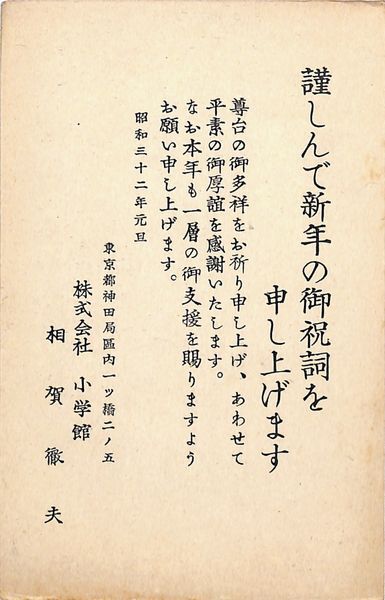 謹しんで新年の御祝詞を
申し上げます
尊台の御多祥をお祈り申し上げ、あわせて
平素の御厚誼を感謝いたします。
なお本年も一層の御支援を賜りますよう
お願い申し上げます。
昭和三十二年元旦
東京都神田局區内一ツ橋二ノ五
株式会社 小学館
相賀徹夫